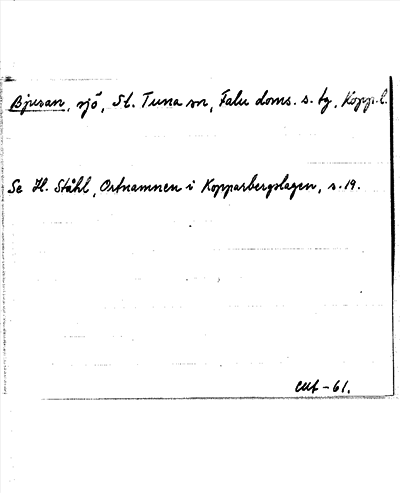 Bjursan, sjö, St. Tuna sn, Falu doms. s. tg, Kopp.l.
Se H. Ståhl, Ortnamnen i Kopparbergslagen, s. 19.
-61.